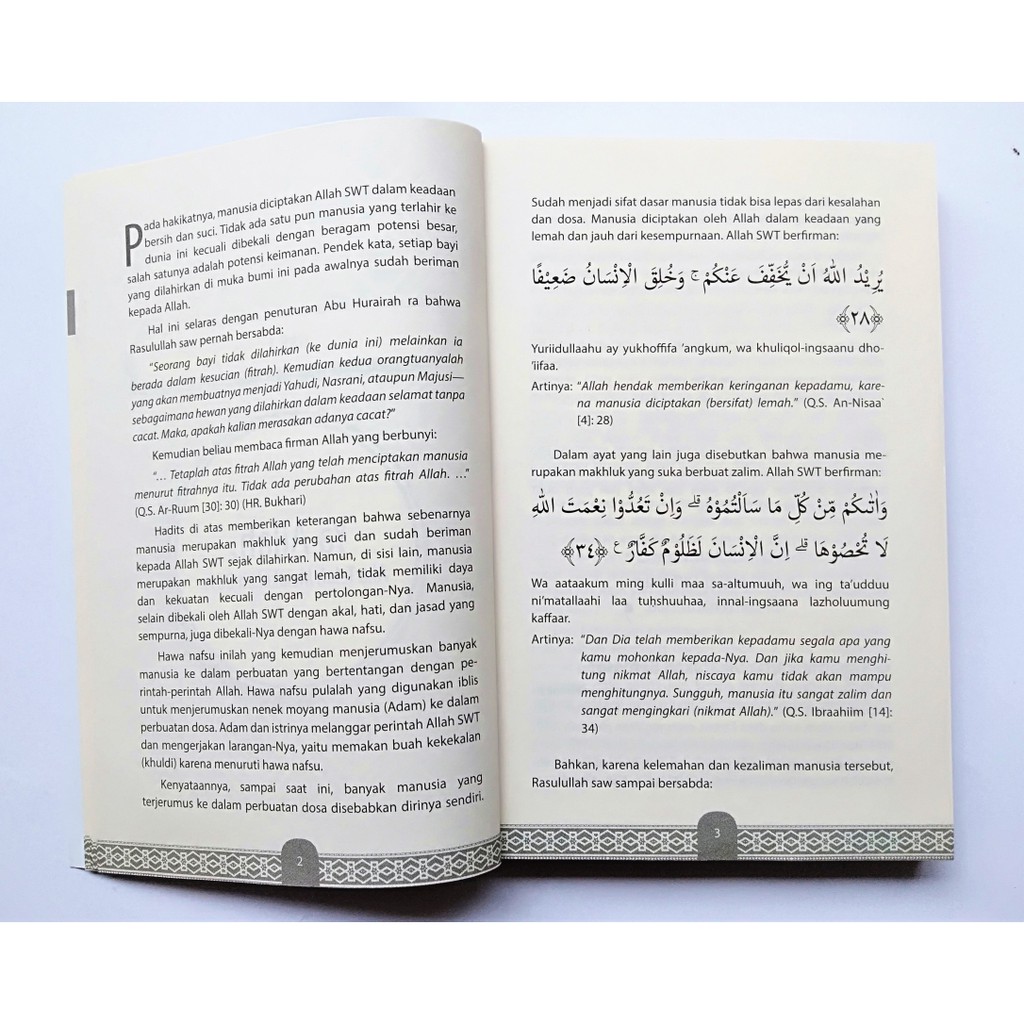 Pada hakikatnya, manusia diciptakan Allah SWT dalam keadaan
bersih dan suci. Tidak ada satu pun manusia yang terlahir ke
dunia ini kecuali dibekali dengan beragam potensi besar,
salah satunya adalah potensi keimanan. Pendek kata, setiap bayi
yang dilahirkan di muka bumi ini pada awalnya sudah beriman
kepada Allah.
Hal ini selaras dengan penuturan Abu Hurairah ra bahwa
Rasulullah saw pernah bersabda:
“Seorang bayi tidak dilahirkan (ke dunia ini) melainkan ia
berada dalam kesucian (fitrah). Kemudian kedua orangtuanyalah
yang akan membuatnya menjadi Yahudi, Nasrani, ataupun Majusi—
sebagaimana hewan yang dilahirkan dalam keadaan selamat tanpa
cacat. Maka, apakah kalian merasakan adanya cacat?”
Kemudian beliau membaca firman Allah yang berbunyi:
“… Tetaplah atas fitrah Allah yang telah menciptakan manusia
menurut fitrahnya itu. Tidak ada perubahan atas fitrah Allah. …”
(Q.S. Ar-Ruum [30]: 30) (HR. Bukhari)
Hadits di atas memberikan keterangan bahwa sebenarnya
manusia merupakan makhluk yang suci dan sudah beriman
kepada Allah SWT sejak dilahirkan. Namun, di sisi lain, manusia
merupakan makhluk yang sangat lemah, tidak memiliki daya
dan kekuatan kecuali dengan pertolongan-Nya. Manusia,
selain dibekali oleh Allah SWT dengan akal, hati, dan jasad yang
sempurna, juga dibekali-Nya dengan hawa nafsu.
Hawa nafsu inilah yang kemudian menjerumuskan banyak
manusia ke dalam perbuatan yang bertentangan dengan pe-
rintah-perintah Allah. Hawa nafsu pulalah yang digunakan iblis
untuk menjerumuskan nenek moyang manusia (Adam) ke dalam
perbuatan dosa. Adam dan istrinya melanggar perintah Allah SWT
dan mengerjakan larangan-Nya, yaitu memakan buah kekekalan
(khuldi) karena menuruti hawa nafsu.
Kenyataannya, sampai saat ini, banyak manusia yang
terjerumus ke dalam perbuatan dosa disebabkan dirinya sendiri.
2
Sudah menjadi sifat dasar manusia tidak bisa lepas dari kesalahan
dan dosa. Manusia diciptakan oleh Allah dalam keadaan yang
lemah dan jauh dari kesempurnaan. Allah SWT berfirman:
يُرِيْدُ اللّٰهُ اَنْ يُّخَفِّفَ عَنْكُمْ ۚ وَخُلِقَ الْاِنْسَانُ ضَعِيْفًا
﴿٢٨﴾
Yuriidullaahu ay yukhoffifa ‘angkum, wa khuliqol-ingsaanu dho-
‘iifaa.
Artinya: “Allah hendak memberikan keringanan kepadamu, kare-
na manusia diciptakan (bersifat) lemah.” (Q.S. An-Nisaa`
[4]: 28)
Dalam ayat yang lain juga disebutkan bahwa manusia me-
rupakan makhluk yang suka berbuat zalim. Allah SWT berfirman:
وَاٰتٰىكُمْ مِّنْ كُلِّ مَا سَاَلْتُمُوْهُ ۗ وَاِنْ تَعُدُّوْا نِعْمَتَ اللّٰهِ
لَا تُحْصُوْهَا ۗ اِنَّ الْاِنْسَانَ لَظَلُوْمٌ كَفَّارٌ ࣖ ﴿٣٤﴾
Wa aataakum ming kulli maa sa-altumuuh, wa ing ta’udduu
ni’matallaahi laa tuḥshuuhaa, innal-ingsaana lazholuumung
kaffaar.
Artinya: “Dan Dia telah memberikan kepadamu segala apa yang
kamu mohonkan kepada-Nya. Dan jika kamu menghi-
tung nikmat Allah, niscaya kamu tidak akan mampu
menghitungnya. Sungguh, manusia itu sangat zalim dan
sangat mengingkari (nikmat Allah).” (Q.S. Ibraahiim [14]:
34)
Bahkan, karena kelemahan dan kezaliman manusia tersebut,
Rasulullah saw sampai bersabda:
3